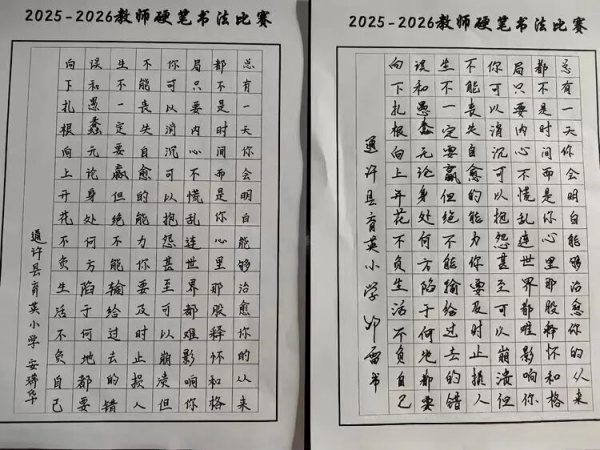 2025-2026教师硬笔书法比赛
总有一天你会明白能够治愈你的从来
都不是时间而是你心里那股释怀和格
局只要内心不慌乱连世界都难影响你
你可以消沉可以抱怨甚至可以崩溃但
不能丧失自愈的能力你要及时止损人
生不一定要赢但绝不能输给过去的错
误和愚蠢无论身处何方陷于何地都要
向下扎根向上开花不负生活不负自己
通许县育英小学 安瑞华
2025-2026教师硬笔书法比赛
总有一天你会明白能够治愈你的从来
都不是时间而是你心里那股释怀和格
局只要内心不慌乱连世界都难影响你
你可以消沉可以抱怨甚至可以崩溃但
不能丧失自愈的能力你要及时止损人
生不一定要赢但绝不能输给过去的错
误和愚蠢无论身处何方陷于何地都要
向下扎根向上开花不负生活不负自己
通许县育英小学 书